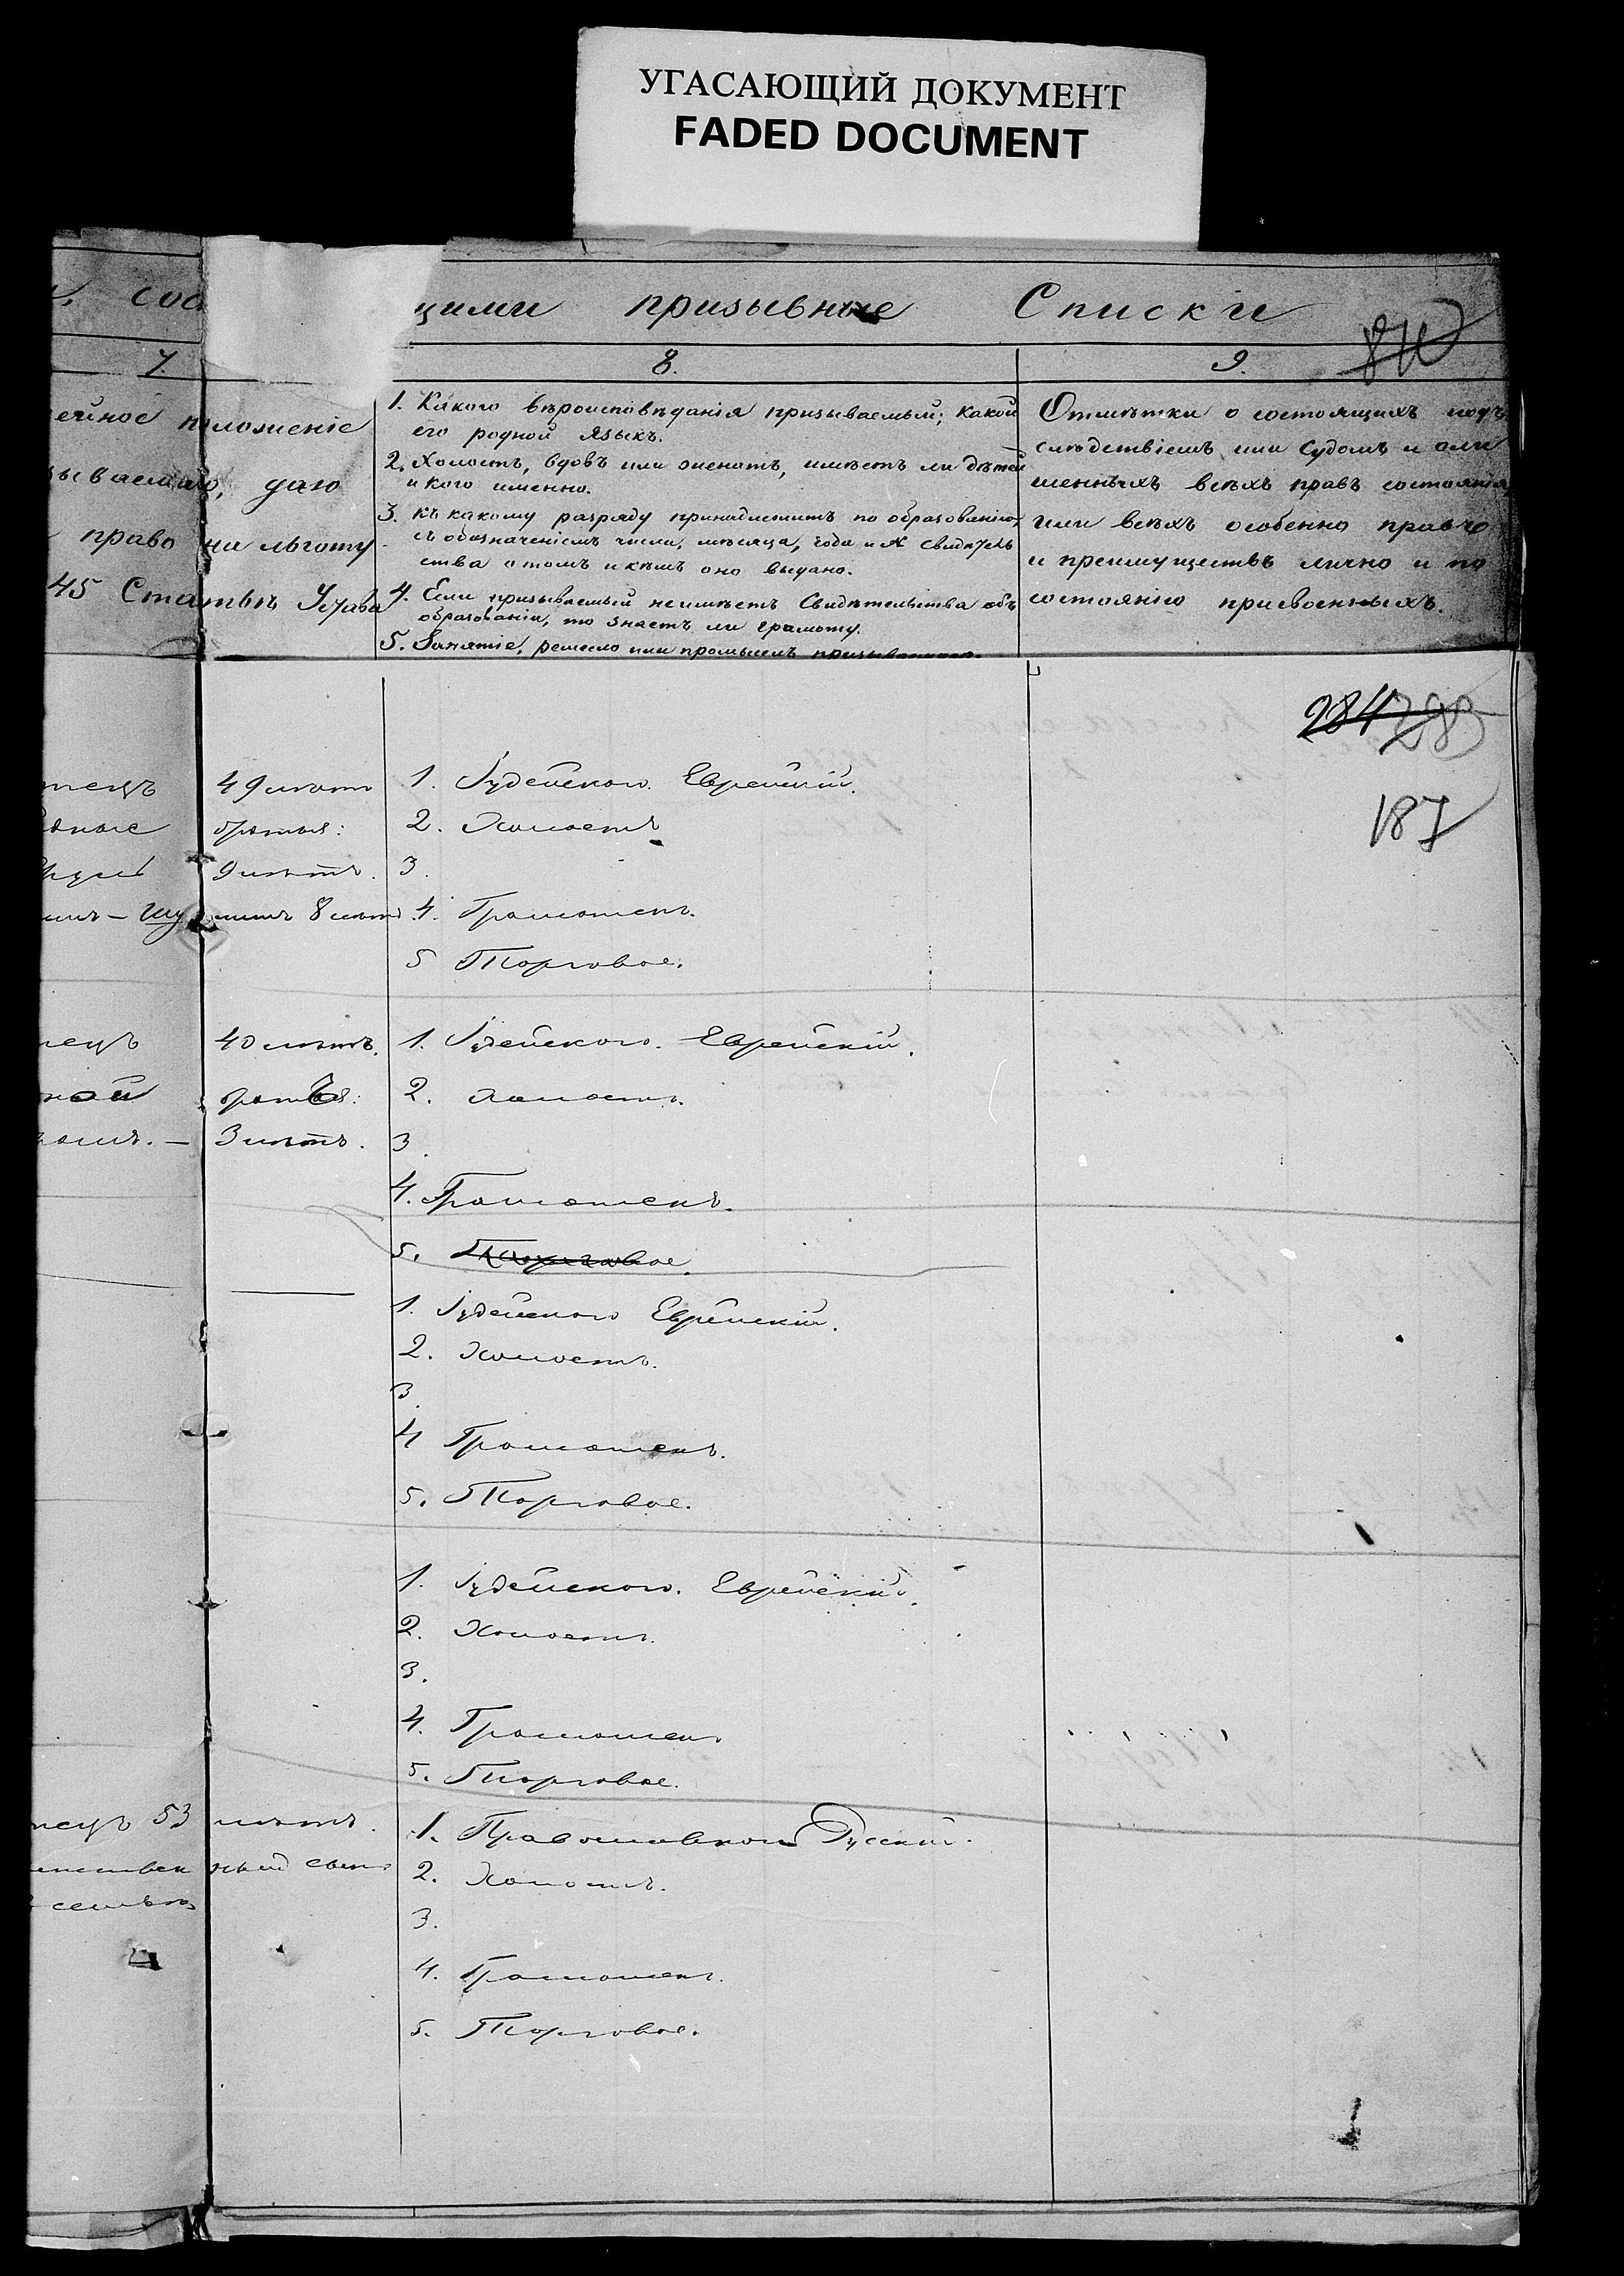 УГАСАЮЩИЙ ДОКУМЕНТ
FADED DOCUMENT
щими призывные Списки
7. 8. 9.
ейное положеніе
ываемаго, даю
право на льготу
45 Статьѣ Устава
1. Какого вѣроисповѣданія призываемый; какой
его родной языкъ.
2. Холостъ, вдовъ или женатъ, имѣетъ ли дѣтей
и кого именно.
3. Къ какому разряду принадлежитъ по образованію,
съ обозначеніемъ числа, мѣсяца, года и № свидѣтель
ства о томъ и кѣмъ оно выдано.
4. Если призываемый неимѣетъ Свидѣтельства объ
образованіи, то знаетъ ли грамоту.
5. Занятіе, ремесло или промыселъ призываемаго.
Отмѣтки о состоящихъ подъ
слѣдствіемъ или Судомъ и али
шенныхъ всѣхъ правъ состоянія
или всѣхъ особенно правъ
и преимуществъ лично и по
состоянію присвоенныхъ.
284 285
187
тецъ 49 лѣтъ
братья:
9 лѣтъ.
8 лѣтъ
1. Іудейскаго. Еврейскій.
2. Холостъ
3.
4. Грамотенъ.
5 Торговое.
тецъ 40 лѣтъ.
ной братья:
3 лѣтъ.
1. Іудейскаго. Еврейскій.
2. Холостъ.
3.
4. Грамотенъ.
5. Торговое.
1. Іудейскаго Еврейскій.
2. Холостъ.
3.
4 Грамотенъ.
5. Торговое.
1. Іудейскаго. Еврейскій.
2. Холостъ.
3.
4. Грамотенъ
5. Торговое.
тецъ 53 лѣтъ.
1. Православнаго Русскій.
2. Холостъ.
3.
4. Грамотенъ.
5. Торговое.